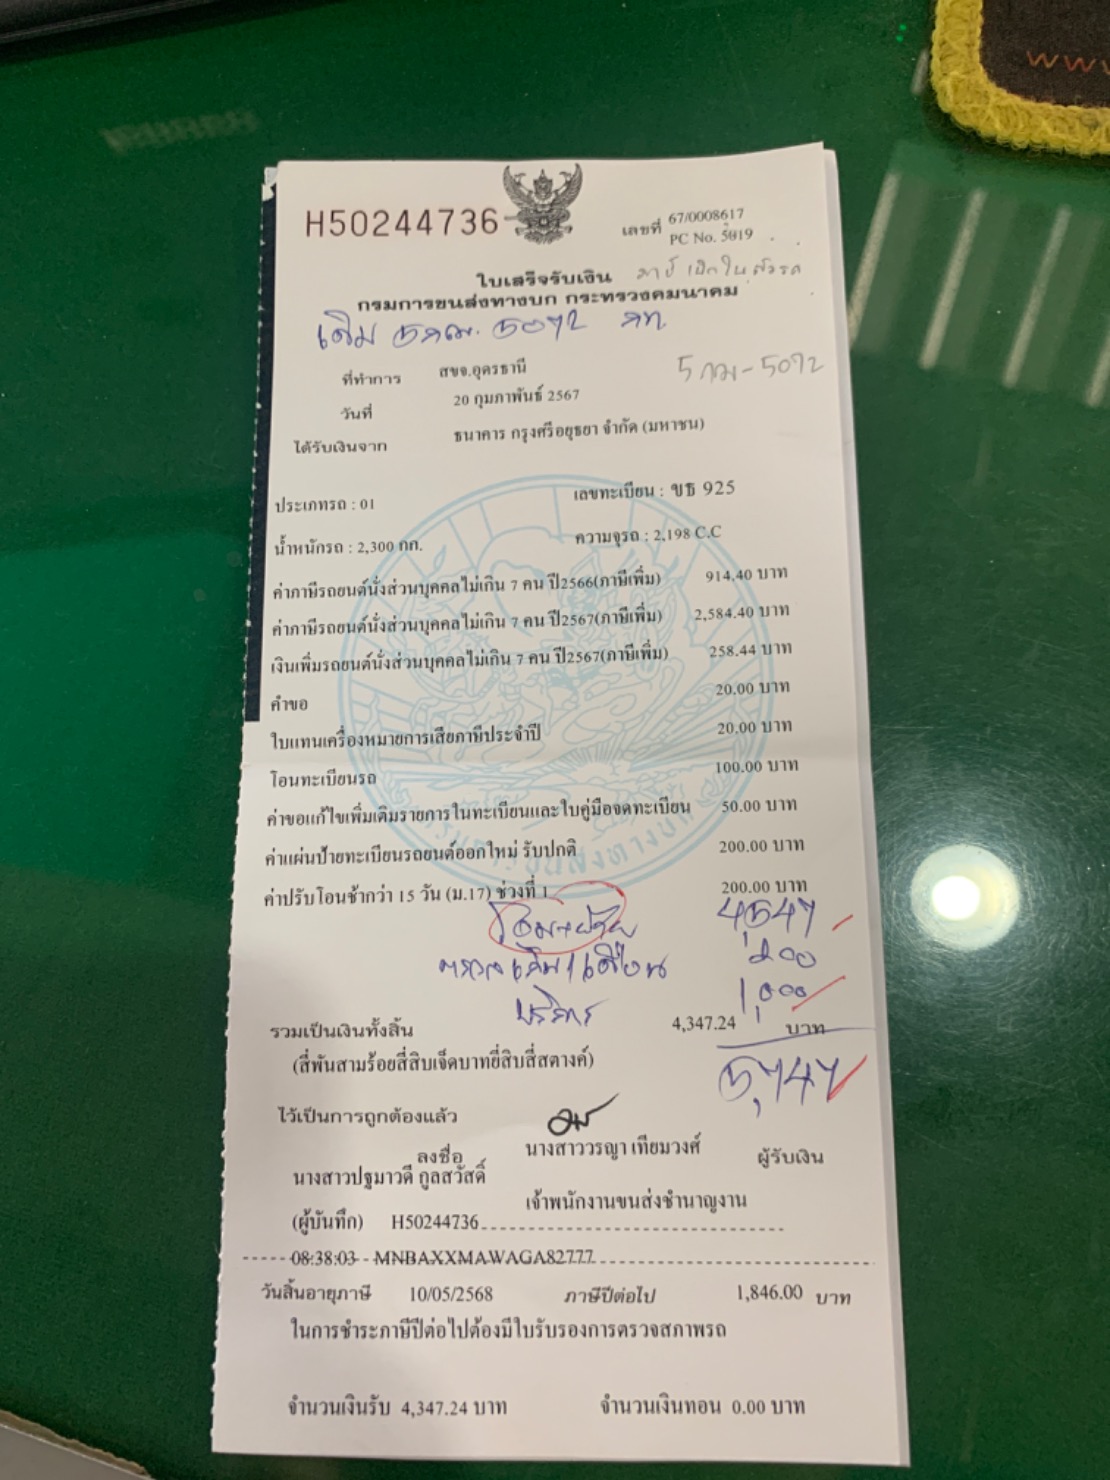 www
H50244736
เลขที่ 67/0008617
PC No. 5019
ใบเสร็จรับเงิน
กรมการขนส่งทางบก กระทรวงคมนาคม
เดิม 5072
5กฒ-5072
ที่ทำการ สขจ.อุดรธานี
วันที่ 20 กุมภาพันธ์ 2567
ได้รับเงินจาก ธนาคาร กรุงศรีอยุธยา จำกัด (มหาชน)
ประเภทรถ : 01 เลขทะเบียน : ขธ 925
น้ำหนักรถ : 2,300 กก. ความจุรถ : 2,198 C.C
ค่าภาษีรถยนต์นั่งส่วนบุคคลไม่เกิน 7 คน ปี2566(ภาษีเพิ่ม) 914.40 บาท
ค่าภาษีรถยนต์นั่งส่วนบุคคลไม่เกิน 7 คน ปี2567(ภาษีเพิ่ม) 2,584.40 บาท
เงินเพิ่มรถยนต์นั่งส่วนบุคคลไม่เกิน 7 คน ปี2567(ภาษีเพิ่ม) 258.44 บาท
คำขอ 20.00 บาท
ใบแทนเครื่องหมายการเสียภาษีประจำปี 20.00 บาท
โอนทะเบียนรถ 100.00 บาท
ค่าขอแก้ไขเพิ่มเติมรายการในทะเบียนและใบคู่มือจดทะเบียน 50.00 บาท
ค่าแผ่นป้ายทะเบียนรถยนต์ออกใหม่ รับปกติ 200.00 บาท
ค่าปรับโอนช้ากว่า 15 วัน (ม.17) ช่วงที่ 1 200.00 บาท
4,547
200
บริการ 1,000
รวมเป็นเงินทั้งสิ้น 4,347.24 บาท
(สี่พันสามร้อยสี่สิบเจ็ดบาทยี่สิบสี่สตางค์)
5,747
ไว้เป็นการถูกต้องแล้ว
ลงชื่อ นางสาววรญา เทียมวงศ์ ผู้รับเงิน
นางสาวปฐมาวดี กูลสวัสดิ์
เจ้าพนักงานขนส่งชำนาญงาน
(ผู้บันทึก) H50244736
08:38:03 MNBAXXMAWAGA82777
วันสิ้นอายุภาษี 10/05/2568 ภาษีปีต่อไป 1,846.00 บาท
ในการชำระภาษีปีต่อไปต้องมีใบรับรองการตรวจสภาพรถ
จำนวนเงินรับ 4,347.24 บาท จำนวนเงินทอน 0.00 บาท